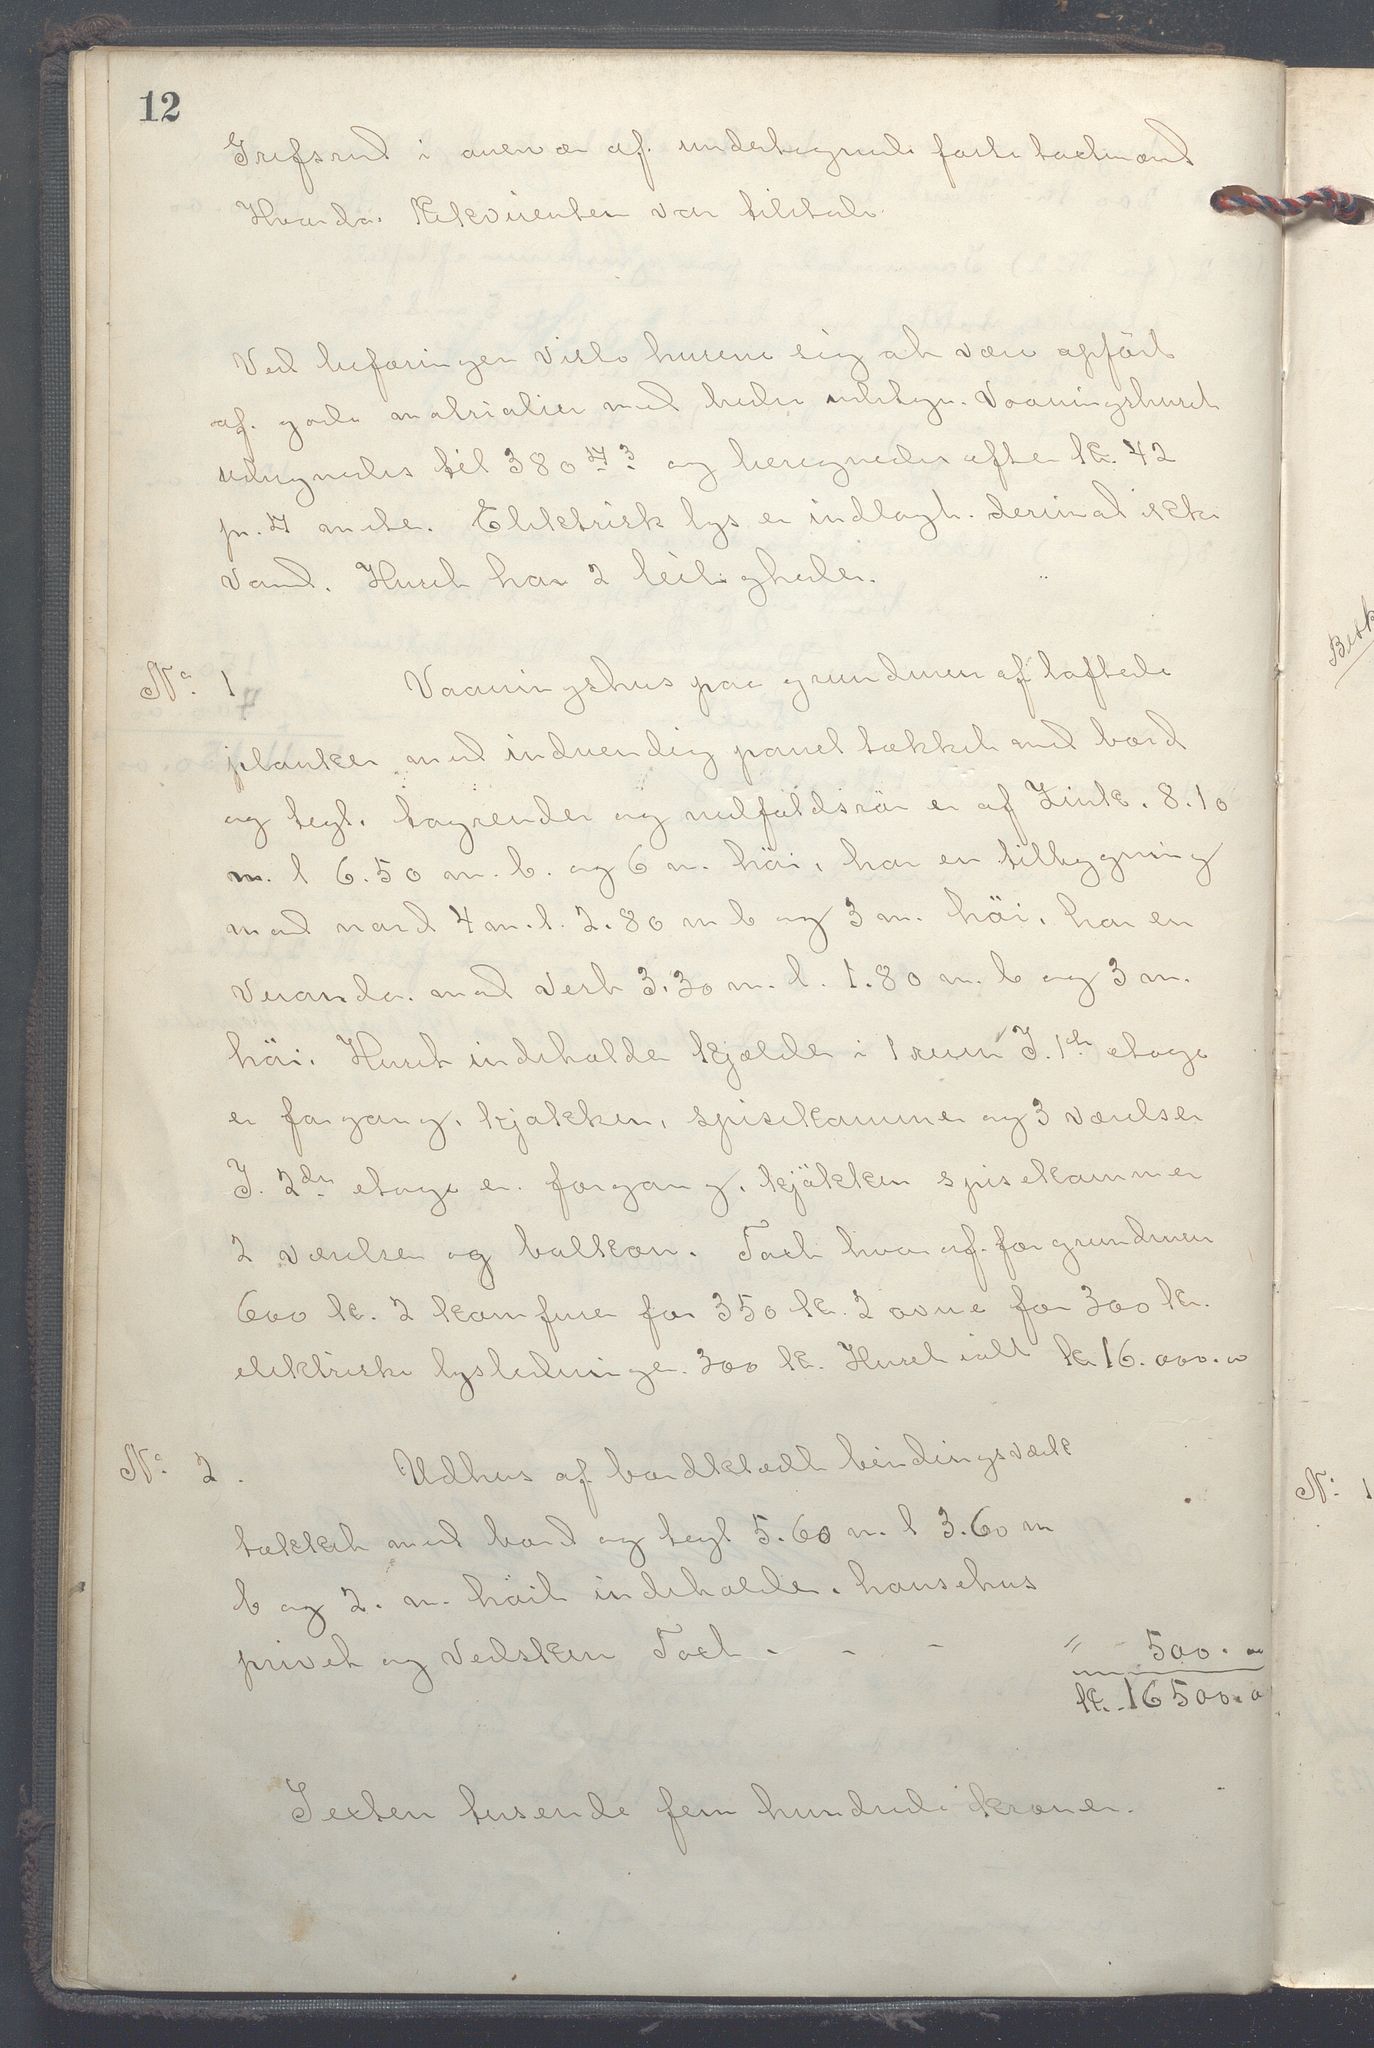 12
Grefsrud i overvær af undertegnede faste taxtmænd
Rekvirenten var tilstede.
Ved befaringen viste husene sig at være opført
af gode matrialier med heder udstyr. Vaaningshuset
udregnedes til 380 M³ og beregnedes efter kr. 42
pr. M meter. Elektrisk lys er indlagt. derimod ikke
vand. Huset har 2 leiligheder.
No. 1 Vaaningshus paa grundmur af laftede
planker med indvendig panel tækket med bord
og tegl. tagrender og nedfaldsrör er af Zink. 8.10
m. l 6.50 m. b. og 6 m. höi, har en tilbygning
mod nord 4 m. l. 2.80 m b og 3 m. höi. har en
Veranda mod vest 3.30 m. l. 1.80 m. b og 3 m.
höi. Huset indeholder kjælder i 1 rum I. 1ste etage
er forgang, kjøkken, spisekammer og 3 værelser
I. 2den etage er forgang, kjökken spisekammer
2 værelser og balkon. Taxt hvoraf for grundmur
600 kr. 2 komfurer for 350 kr. 2 ovne for 300 kr.
elektriske lysledninger 300 kr. Huset ialt kr 16.000.00
No. 2. Udhus af bordklædt bindingsværk
tækket med bord og tegl 5.60 m. l 3.60 m
b og 2. m. höit indeholder. hønsehus
privet og Vedskur Taxt - - - " 500.00
kr. 16500.00
Sexten tusende fem hundrede kroner.
No. 1